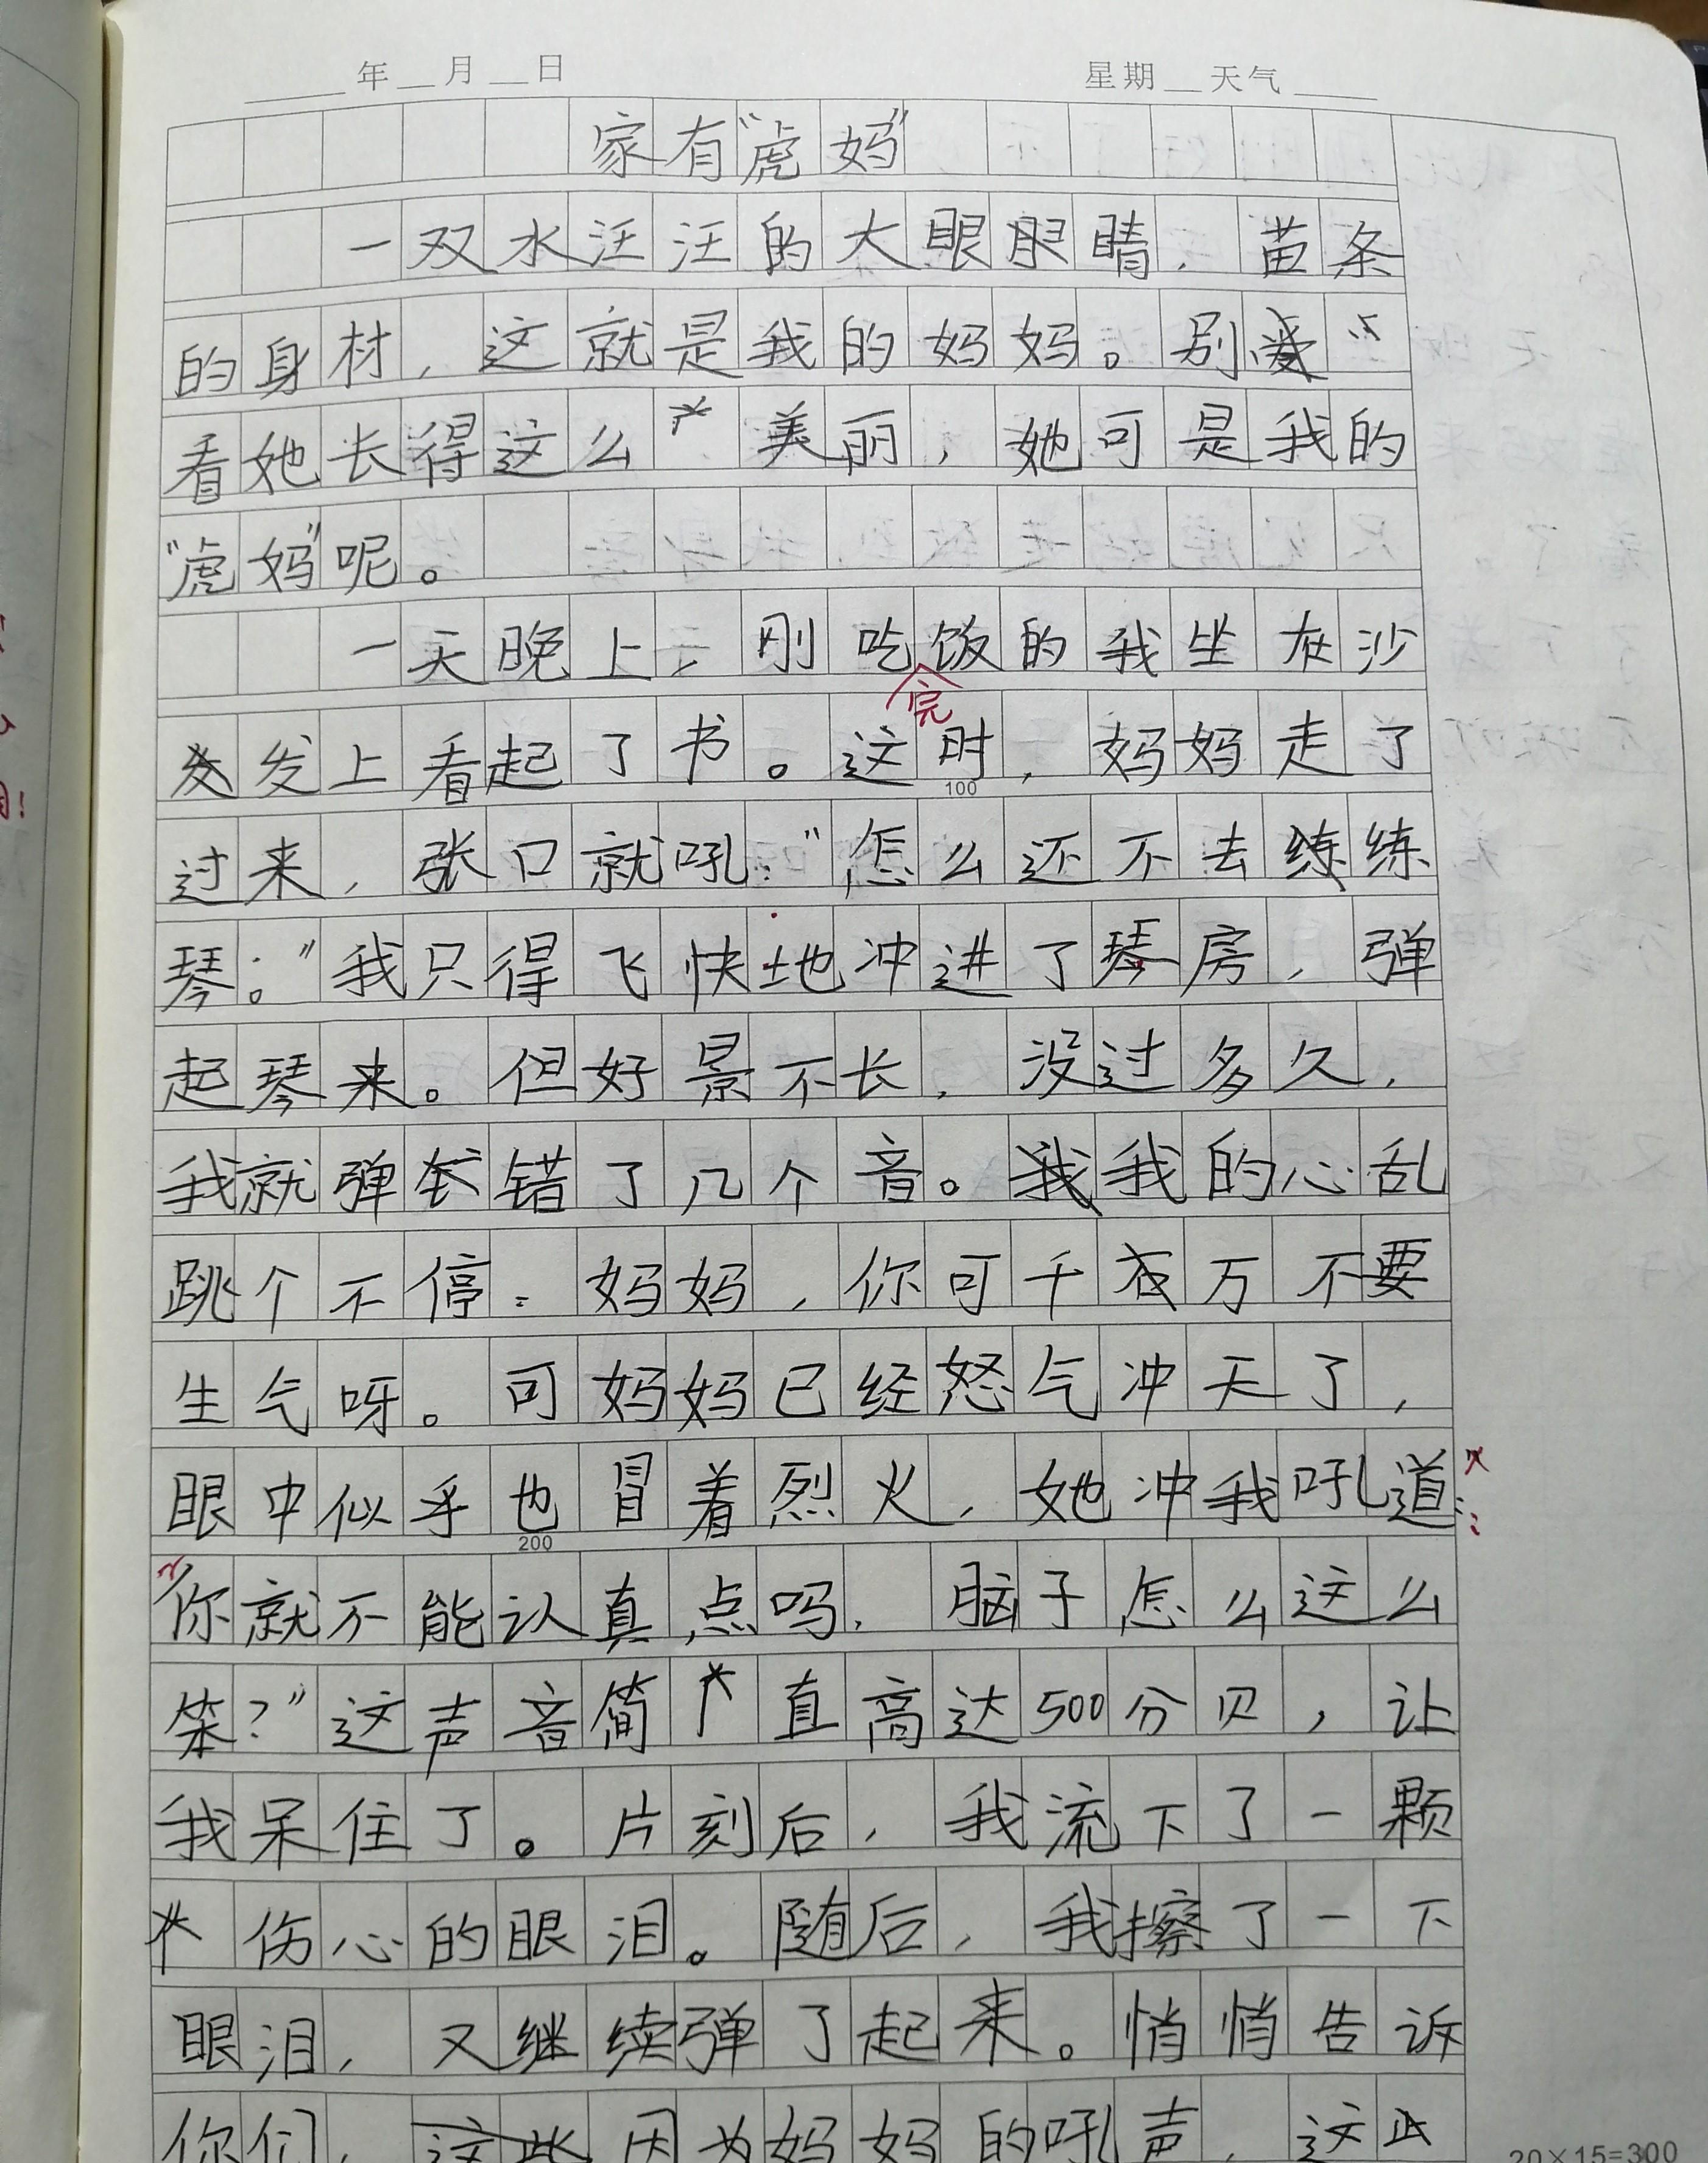 年 月 日 星期 天气
家有“虎妈”
一双水汪汪的大眼睛，苗条
的身材，这就是我的妈妈。别
看她长得这么美丽，她可是我的
“虎妈”呢。
一天晚上，刚吃完饭的我坐在沙
发上看起了书。这时，妈妈走了
100
过来，张口就吼：“怎么还不去练
琴。”我只得飞快地冲进了琴房，弹
起琴来。但好景不长，没过多久，
我就弹错了几个音。我的心乱
跳个不停：妈妈，你可千万不要
生气呀。可妈妈已经怒气冲天了，
眼中似乎也冒着烈火，她冲我吼道：
200
“你就不能认真点吗，脑子怎么这么
笨？”这声音简直高达500分贝，让
我呆住了。片刻后，我流下了一颗
伤心的眼泪。随后，我擦了一下
眼泪，又继续弹了起来。悄悄告诉
你们，因为妈妈的吼声，这
20×15=300